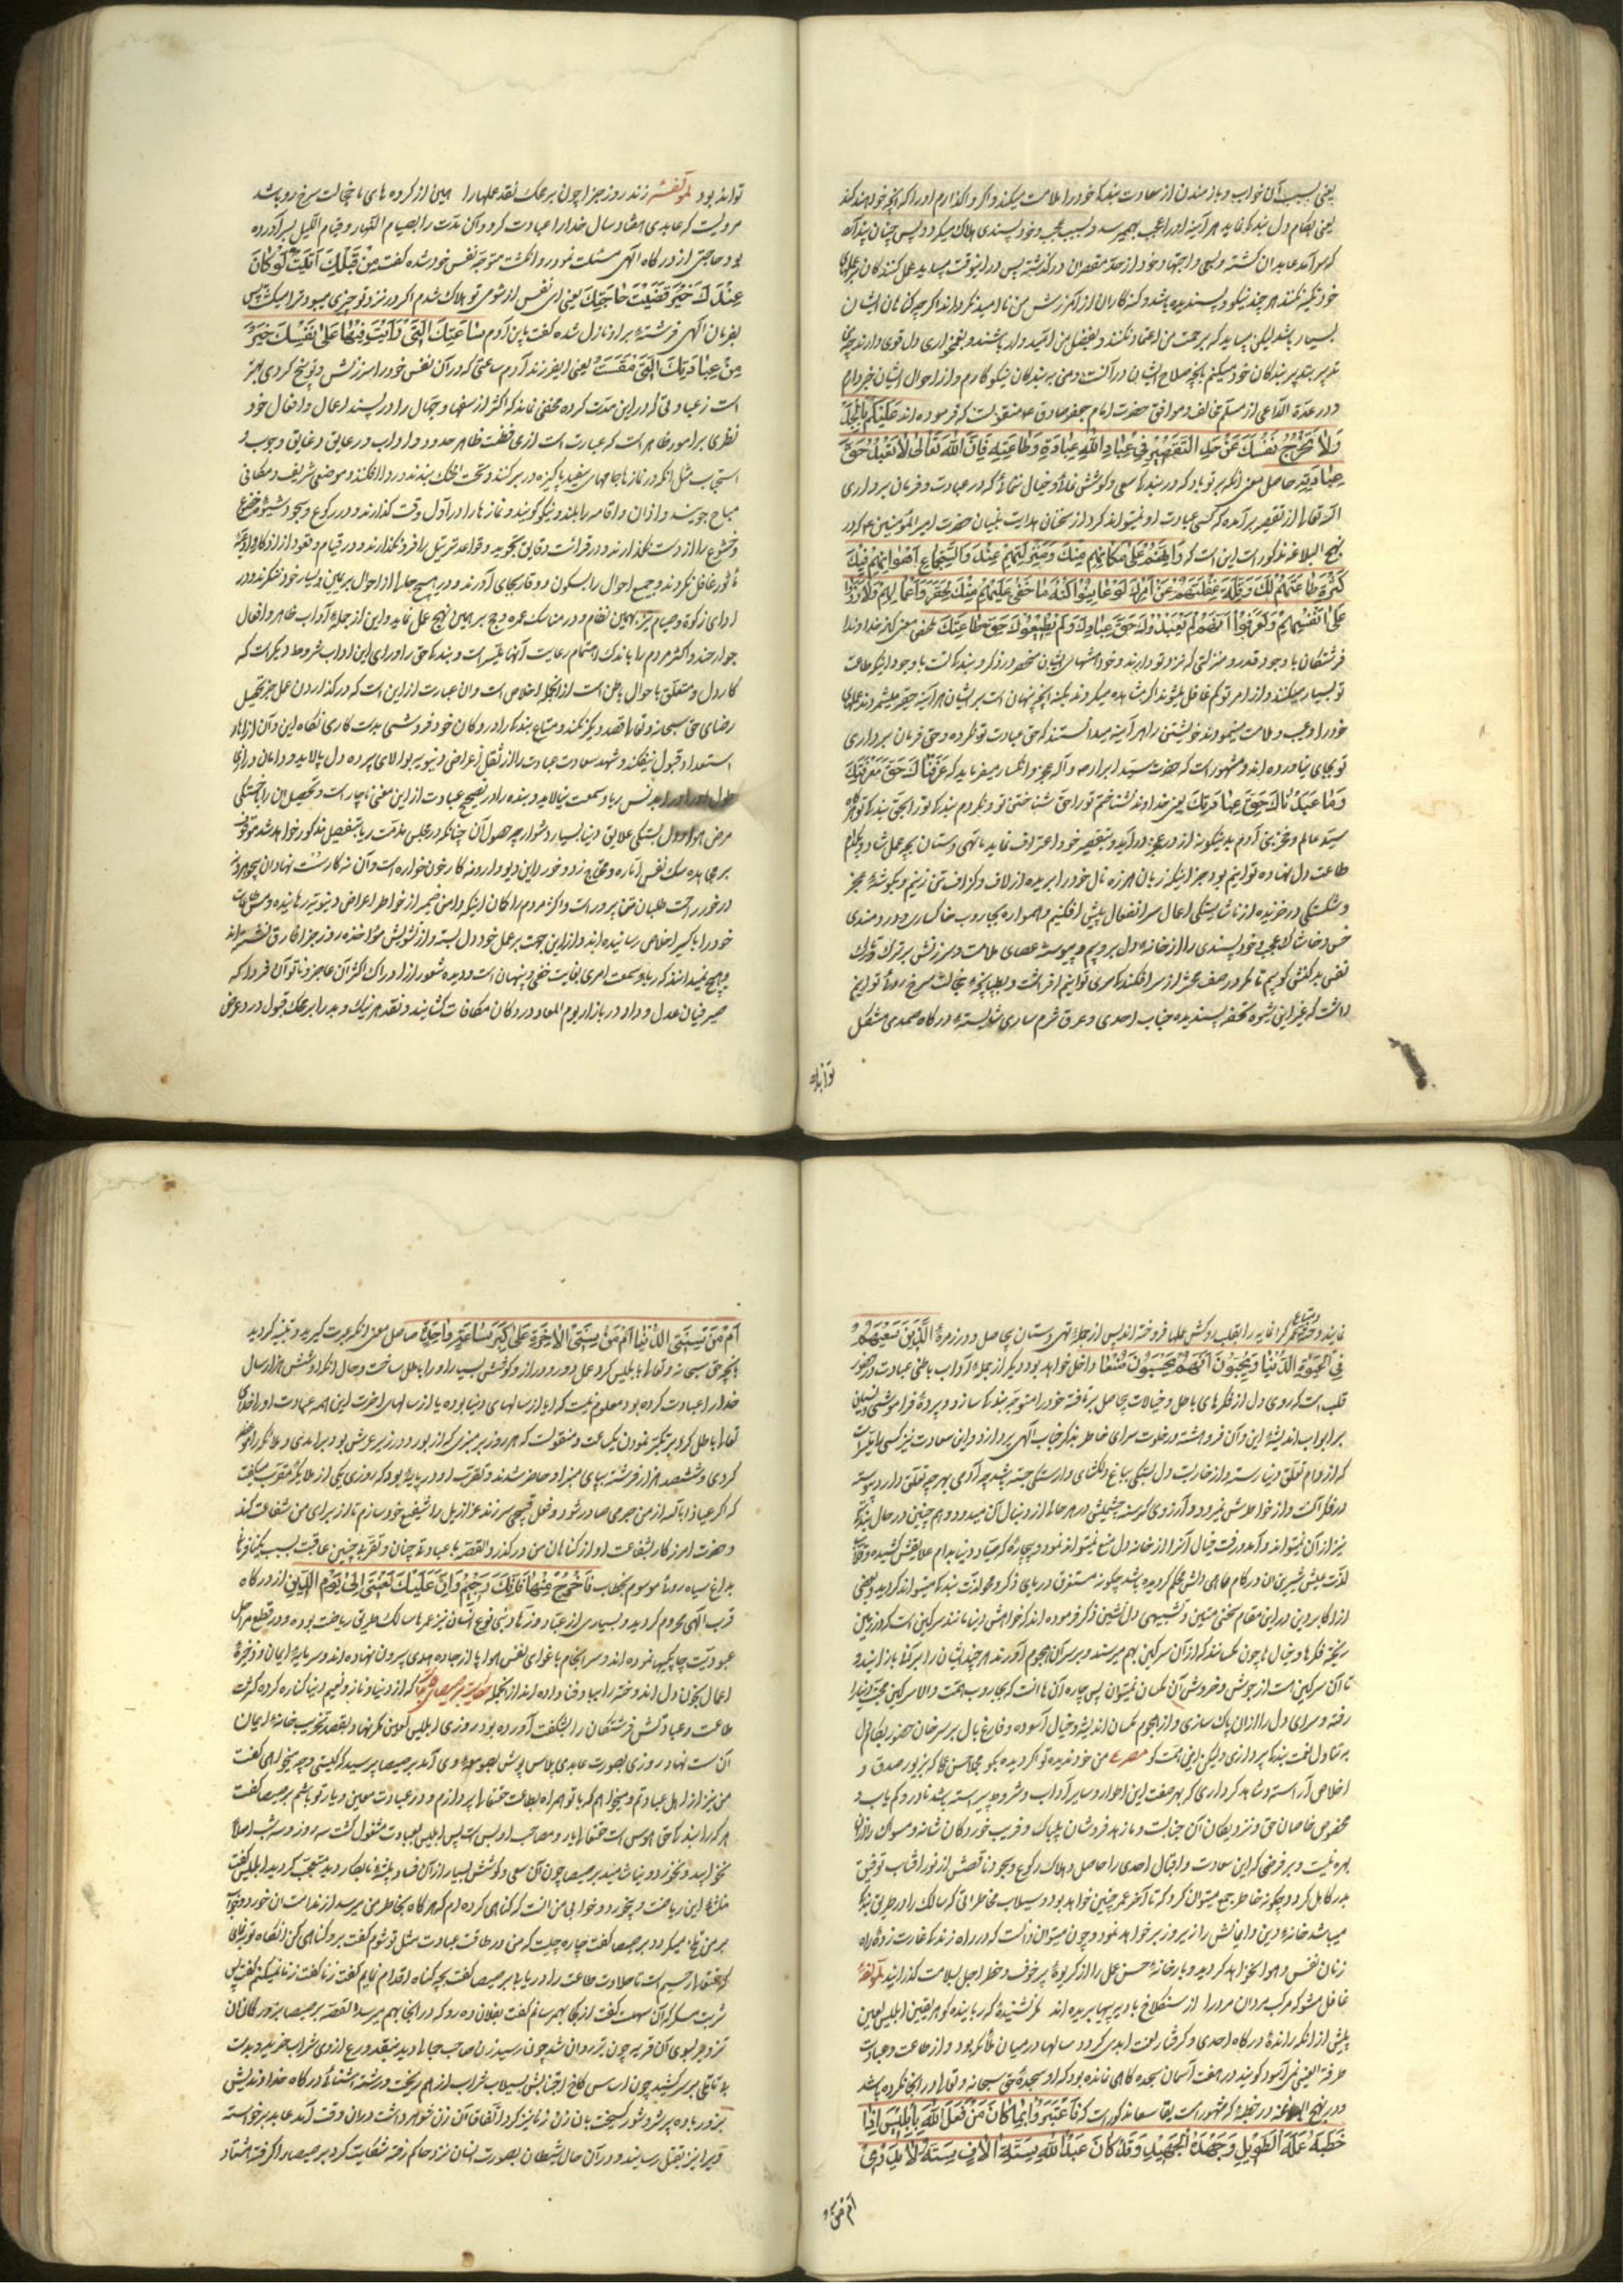 یعنی بسبب آن خواب و بازماندن از سعادت بندکی خود را ملامت میکند و اکر واکذارم او را که آنچه خواهد کند
یعنی بکام دل بندکی نماید هر آینه او را عجب بهم رسد و بسبب عجب و خود پسندی هلاک میکردد پس چنان پندارد
که سرآمد عابدان کشته و بسعی و اجتهاد خود از حد مقصران درکذشته پس در اینوقت میباید عمل کنندکان بر عملهای
خود تکیه نکنند هر چند نیکو و پسندیده باشد و کنه کاران از آمرزش من ناامید نکردند اکر چه کناهان ایشان
بسیار باشد لیکن میباید که برحمت من اعتماد نکنند و بفضل من امیدوار باشند و
تدبیر بندکان خود میکنم بآنچه صلاح ایشان در آنست و من به بندکان نیکوکارم و از احوال ایشان خبردارم
و در عدة الداعی از حضرت امام جعفر صادق ع منقولست که فرموده اند عَلَیْکُمْ بِالْجِدِّ
وَلَا تُخْرِجْ نَفْسَكَ عَنْ حَدِّ التَّقْصِیرِ فِی عِبَادَةِ اللّٰهِ وَطَاعَتِهِ فَاِنَّ اللّٰهَ تَعَالٰی لَا یُعْبَدُ حَقَّ
عِبَادَتِهِ حاصل معنی آنکه بر تو باد که در بندکی سعی و کوشش نمائی و خیال ننمائی که در عبادت و فرمان برداری
اله تعالی از تقصیر برآمده که کسی عبادت او نمیتواند کرد از سخنان هدایت بنیان حضرت امیرالمؤمنین ع که در
نهج البلاغه مذکور است این است که وَاِنَّهُمْ عَلٰی مَکَانِهِمْ مِنْكَ وَمَنْزِلَتِهِمْ عِنْدَكَ وَاسْتِجْمَاعِ اَهْوَائِهِمْ فِیكَ
کَثْرَةِ طَاعَتِهِمْ لَكَ وَقِلَّةِ غَفْلَتِهِمْ عَنْ اَمْرِكَ لَوْ عَایَنُوا کُنْهَ مَا خَفِیَ عَلَیْهِمْ مِنْكَ لَحَقَّرُوا اَعْمَالَهُمْ وَلَزَرَوْا
عَلٰی اَنْفُسِهِمْ وَلَعَرَفُوا اَنَّهُمْ لَمْ یَعْبُدُوكَ حَقَّ عِبَادَتِكَ وَلَمْ یُطِیعُوكَ حَقَّ طَاعَتِكَ
فرشتکان با وجود قدر و منزلتی که نزد تو دارند و باوجود اینکه طاعت
تو بسیار میکنند و از امر تو کم غافل میشوند اکر مشاهده میکردند کنه آنچه پنهان است بر ایشان هر آینه حقیر میشمردند عملهای
خود را و عیب و ملامت مینمودند خویشتن را و هر آینه میدانستند که حق عبادت تو نکرده و حق فرمان برداری
تو بجای نیاورده اند و مشهور است که حضرت سید ابرار ص و آله عجز و انکسار میفرماید که مَا عَرَفْنَاكَ حَقَّ مَعْرِفَتِكَ
وَمَا عَبَدْنَاكَ حَقَّ عِبَادَتِكَ یعنی خداوندا نشناختیم تو را حق شناختن تو و نکردیم بندکی تو را
سید عالم و فخر بنی آدم بدینکونه از در عجز درآید و بتقصیر خود اعتراف نماید ما تهی دستان بچه عمل شاد و بکدام
طاعت دل نهاده توانیم بود جز اینکه زبان هرزه نال خود را بریده از لاف و کزاف تن زنیم و بکوشهٔ عجز
و شکستکی در خزیده از ناشایستکی اعمال سر انفعال پیش افکنیم و همواره بجاروب خاکساری و دردمندی
خس و خاشاک عجب و خود پسندی را از خانهٔ دل بروبیم و پیوسته عصای ملامت و سرزنش بر ترک و تارک
نفس بدکنش کوبیم تا مکر در صف محشر از سرافکندکی سری توانیم افراشت و بطپانچهٔ خجالت سرخ روئی توانیم
داشت که غیر این شیوه تحفهٔ پسندیدهٔ جناب احدی و عرق شرم ساری شایستهٔ درکاه صمدی مشکل
تواند
تواند بود لمؤلفه زند روز جزا چون بر محک نقد عملها را همین از کرده های ما خجالت سرخ رو باشد
مرویست که عابدی هفتاد سال خدا را عبادت کرد و آن مدت را بصیام النهار و قیام اللیل بسر آورده
بود حاجتی از درکاه الهی مسئلت نمود روا نکشت متوجه نفس خود شده کفت مِنْ قِبَلِكَ اُتِیتُ لَوْ کَانَ
عِنْدَكَ خَیْرٌ قُضِیَتْ حَاجَتُكَ یعنی ای نفس از شومی تو هلاک شدم اکر در نزد تو چیزی میبود
بفرمان الهی فرشتهٔ بر او نازل شده کفت یابن آدم سَاعَتُكَ الَّتِی اَزْرَیْتَ فِیهَا عَلٰی نَفْسِكَ خَیْرٌ
مِنْ عِبَادَتِكَ الَّتِی مَضَتْ یعنی ای فرزند آدم ساعتی که در آن نفس خود را سرزنش و توبیخ کردی بهتر
است ز عبادتی که در این مدت کرده مخفی نماند که اکثر از سفها و جهال را در پسند اعمال و افعال خود
نظری بر امور ظاهر است که عبارت است از محافظت ظاهر حدود و آداب و رعایت دقایق وجوب و
استحباب مثل آنکه در نماز جامهای سفید پاکیزه در بر کنند و تحت الحنک بندند و ردا افکنند و موضعی شریف و مکانی
مباح جویند و اذان و اقامه را بلند و نیکو کویند و نمازها را در اول وقت کذارند و در رکوع و سجود شیوهٔ خضوع
و خشوع را از دست نکذارند و در قرائت دقایق تجوید و قواعد ترتیل را فرو نکذارند و در قیام و قعود از اذکار و ادعیهٔ
مأثور غافل نکردند و جمیع احوال را بسکون و وقار بجای آورند و در هیچ حال از احوال بر یمین و یسار خود ننکرند و در
ادای زکوة و صیام نیز بهمین نظام و در مناسک عمره و حج بر همین نهج عمل نمایند و این از جملهٔ آداب ظاهر و افعال
جوارحند و اکثر مردم را باندک اهتمام رعایت آنها میسر است و بندکی حق را ورای این آداب شروط دیکر است که
کار دل و متعلق باحوال باطن است از آنجمله اخلاص است و آن عبارت از این است که در کذاردن عمل جز تحصیل
رضای حق سبحانه و تعالی قصد دیکر نکند و متاع بندکی را در دکان خود فروشی بدست کاری نکاه این و آن
استعداد قبول نیفکند و شهد سعادت عبادت را از ثقل اعراض دنیویه بپالای پرده دل پالاید
ریا و سمعت نیالاید و بنده را در تصحیح عبادت از این معنی ناچار است و تحصیل آن را
علایق دنیا بسیار دشوار چه حصول آن چنانکه در مجلس مذمت ریا بتفصیل مذکور خواهد شد موقوف
بر مجاهدهٔ سک نفس اماره
در خور راحت طلبان تن پرور است و اکثر مردم را کمان اینکه دامن ضمیر از خواطر اعراض دنیویه رهانیده و مس طاعات
خود را باکسیر اخلاص رسانیده اند و از این جهت بر عمل خود دل بسته و از تشویش مؤاخذهٔ روز جزا فارق نشسته اند
و هیچ نمیدانند که ریا و سمعت امری بغایت خفی و پنهان است و دیدهٔ شعور از ادراک اکثر آن عاجز و ناتوان فردا که
صیرفیان عدل و داد در بازار یوم المعاد در دکان مکافات کشایند و نقد هر نیک و بد را بر محک قبول در دعوض
نمایند
را بقلب روکش عملها فروخته اند پس از جملهٔ تهی دستان بیحاصل و در زمرهٔ الَّذِینَ ضَلَّ سَعْیُهُمْ
فِی الْحَیٰوةِ الدُّنْیَا وَیَحْسَبُونَ اَنَّهُمْ یُحْسِنُونَ صُنْعًا داخل خواهد بود و دیکر از جملهٔ آداب باطنی عبادت حضور
قلب است که روی دل از فکرهای باطل و خیالات بیحاصل برتافته خود را متوجه بندکی سازد و پردهٔ فراموشی
بر ابواب اندیشهٔ این و آن فروهشته در خلوت سرای خاطر بذکر جناب الهی پردازد و این سعادت نیز کسی را میسر است
که از دام تعلق دنیا رسته و از خارستان دل بستکی بباغ دلکشای وارستکی جسته باشد چه آدمی بهر چه تعلق دارد پیوسته
در فکر آنست و از خواطرش نمیرود و آرزوی کرسنه چشمیش در هر حال از دنبال آن میدود و همچنین در حال بندکی
نیز از آن نمیتواند و آمد و رفت خیال آنرا از خانهٔ دل منع نمیتواند نمود و بیچارهٔ که صیاد دنیا بدام علایقش کشیده
لذت عیش شیرین آن در کام دلش محکم کردیده باشد چکونه مستغرق دریای ذکر و محو لذت بندکی میتواند کردید و بعضی
از اکابر دین در این مقام سخنی متین و تشبیهی دل نشین ذکر فرموده اند که خواهش دنیا مانند سرکین است که در زمین
ریخته فکرها و خیال ها چون مکسانند که از آن سرکین بهم میرسند و بر سر آن هجوم آورند هر چند ایشان را برانند باز آیند و
تا آن سرکین هست از جوش و خروش آن مکسان نمیتوان پس چاره آن همانست که بجاروب همت والا سرکین محبت دنیا را
رفته و سرای دل را از آن پاک سازی و از هجوم مکسان اندیشه و خیال آسوده و فارغ بال بر سر خوان حضور بکام دل
به تناول نعمت بندکی پردازی ولیکن این همت کو مصرع من خود ندیده تو اکر دیده بکو مجلا حسن عملی که بزیور صدق و
اخلاص آراسته و شاهد کرداری که بهر صفت این اطوار و سایر آداب و شروط پیراسته باشد نادر و کمیاب و
مخصوص خاصان حق و نزدیکان آن جنابست و ما زهد فروشان بیباک و فریب خوردکان شانه و مسواک را از آن
بهره نیست و بر فرضی که این سعادت و اقبال احدی را حاصل و هلاک رکوع و سجود ناقصش از نور آفتاب توفیق
بدر کامل کردد چکونه خاطر جمع میتوان کرد که تا آخر عمر چنین خواهد بود و سیلاب مخاطراتی که سالک را در طریق بندکی
میباشد خانهٔ دین و ایمانش را زیر و زبر نخواهد نمود و چون میتوان دانست که در راه زندکی غارت زدهٔ راه
زنان نفس و هوا نخواهد کردید و بارخانهٔ حسن عمل را از کریوهٔ پر خوف و خطر اجل بسلامت کذرانید لمؤلفه
غافل مشو که مرکب مردان مرد را از سنکلاخ بادیه پیها بریده اند نشنیدهٔ که رباینده کوهر یقین ابلیس لعین
پیش از آنکه راندهٔ درکاه احدی و کرفتار لعنت ابدی کردد سالها در میان ملائکه بود و از طاعت و عبادت
طرفة العینی نمی آسود کویند در هفت آسمان سجده کاهی نمانده بود که او سجدهٔ حق سبحانه و تعالی در آنجا نکرده باشد
و در نهج البلاغه در خطبهٔ که مشهور است بقاصعه مذکور است که فَاعْتَبِرُوا بِمَا کَانَ مِنْ فِعْلِ اللّٰهِ بِاِبْلِیسَ اِذْ
حَبِطَ عَمَلُهُ الطَّوِیلَ وَجَهْدَهُ الْجَهِیدَ وَقَدْ کَانَ عَبَدَ اللّٰهَ سِتَّةَ اٰلَافِ سَنَةٍ لَا یُدْرٰی
اَمِنْ
اَمْ مِنْ سِنِی الدُّنْیَا اَمْ مِنْ سِنِی الْاٰخِرَةِ عَلٰی کِبْرِ سَاعَةٍ وَاحِدَةٍ حاصل معنی آنکه عبرت کیرید و تنبیه کردید
بآنچه حق سبحانه و تعالی با ابلیس کرد عمل دور و دراز و کوشش بسیار او را باطل ساخت و حال آنکه او شش هزار سال
خدا را عبادت کرده بود معلوم نیست که آیا از سالهای دنیا بوده یا از سالهای آخرت این همه عبادت او را خدای
تعالی باطل کرد بر تکبر نمودن یکساعت و منقولست که هر روز بر منبری که از نور و در زیر عرش بود برآمدی و ملائکه را موعظه
کردی و ششصد هزار فرشته بپای منبر او حاضر شدند و تقرب او در پایهٔ بود که روزی یکی از ملائکهٔ مقرب میکفت
که اکر عیاذا بالله از من جرمی صادر شود و فعل قبیحی سر زند عزازیل را شفیع خود سازم تا از برای من شفاعت کند
و حضرت آمرزکار بشفاعت او از کناهان من درکذرد القصه با عبادت چنان و تقرب چنین عاقبت بسبب یک نافرمانی
بداغ سیاه روئی موسوم بخطاب فَاخْرُجْ مِنْهَا فَاِنَّكَ رَجِیمٌ وَاِنَّ عَلَیْكَ لَعْنَتِی اِلٰی یَوْمِ الدِّینِ از درکاه
قرب الهی محروم کردید و بسیاری از عباد و زهاد بنی نوع انسان نیز عمرها سالک طریق ریاضت بوده و در قطع مراحل
عبودیت چابکیها نموده اند و سرانجام باغوای نفس هوا پا از جاده هدی بیرون نهاده اند و سرمایهٔ ایمان و ذخیرهٔ
اعمال بخون دل اندوخته را بباد فنا داده اند از آنجمله حکایت برصیصای عابد که از دنیا و ناز و نعیم دنیا کناره کرده کثرت
طاعت و عبادتش فرشتکان را بشکفت آورده بود روزی ابلیس کمان مکر نهاد بقصد تخریب خانهٔ ایمان
آن سست نهاد روزی بصورت عابدی پلاس پوش بصومعهٔ وی آمد برصیصا پرسید که کیستی و چه میخواهی کفت
من نیز از اهل عبادتم و میخواهم که با تو همراه بطاعت حقتعالی پردازم و در عبادت معین و یار تو باشم برصیصا کفت
هر که را بندکی حق هوس است حقتعالی یار و مصاحب او بس است پس ابلیس بعبادت مشغول کشت سه روز و سه شب اصلا
نخوابید و نخورد و نیاشامید برصیصا چون آن سعی و کوشش بسیار از آن فساد پیشهٔ نابکار دید متعجب کردید ابلیس کفت
منشاء این ریاضت و بیخورد و خوابی من آنست که کناهی کرده ام که هرکاه بخاطر من میرسد از ندامت آن خورد و خواب
بر من تلخ میکردد برصیصا کفت چاره چیست که من در طاقت عبادت مثل تو شوم کفت برو کناهی کن آنکاه توبه نمای
که حقتعالی رحیم است تا حلاوت طاعت را دریابی برصیصا کفت بچه کناه اقدام نمایم کفت زنا کفت زنا نمیکنم کفت پس
شرب مسکر که آن سهلست کفت از کجا بهم رسانم کفت بفلان ده رو که در آنجا بهم میرسد القصه برصیصا
بسوی آن قریه چون تیر روان شد چون رسید زن صاحب جمالی دید بنقد ورع از وی شراب خرید و بدست
بی تاملی بر سر کشید چون اساس کاخ اجتنابش بسیلاب شراب از هم ریخت و رشتهٔ آشنائی درکاه خداوندیش
بزور باده پر شر و شور کسیخت بآن زن زنا نیز کرد اتفاقا آن زن شوهر داشت در آن وقت آمد عابد برخواسته
ویرا نیز بقتل رسانید و در آن حال شیطان بصورت انسان نزد حاکم رفته شکایت کرد برصیصا را کرفته هشتاد